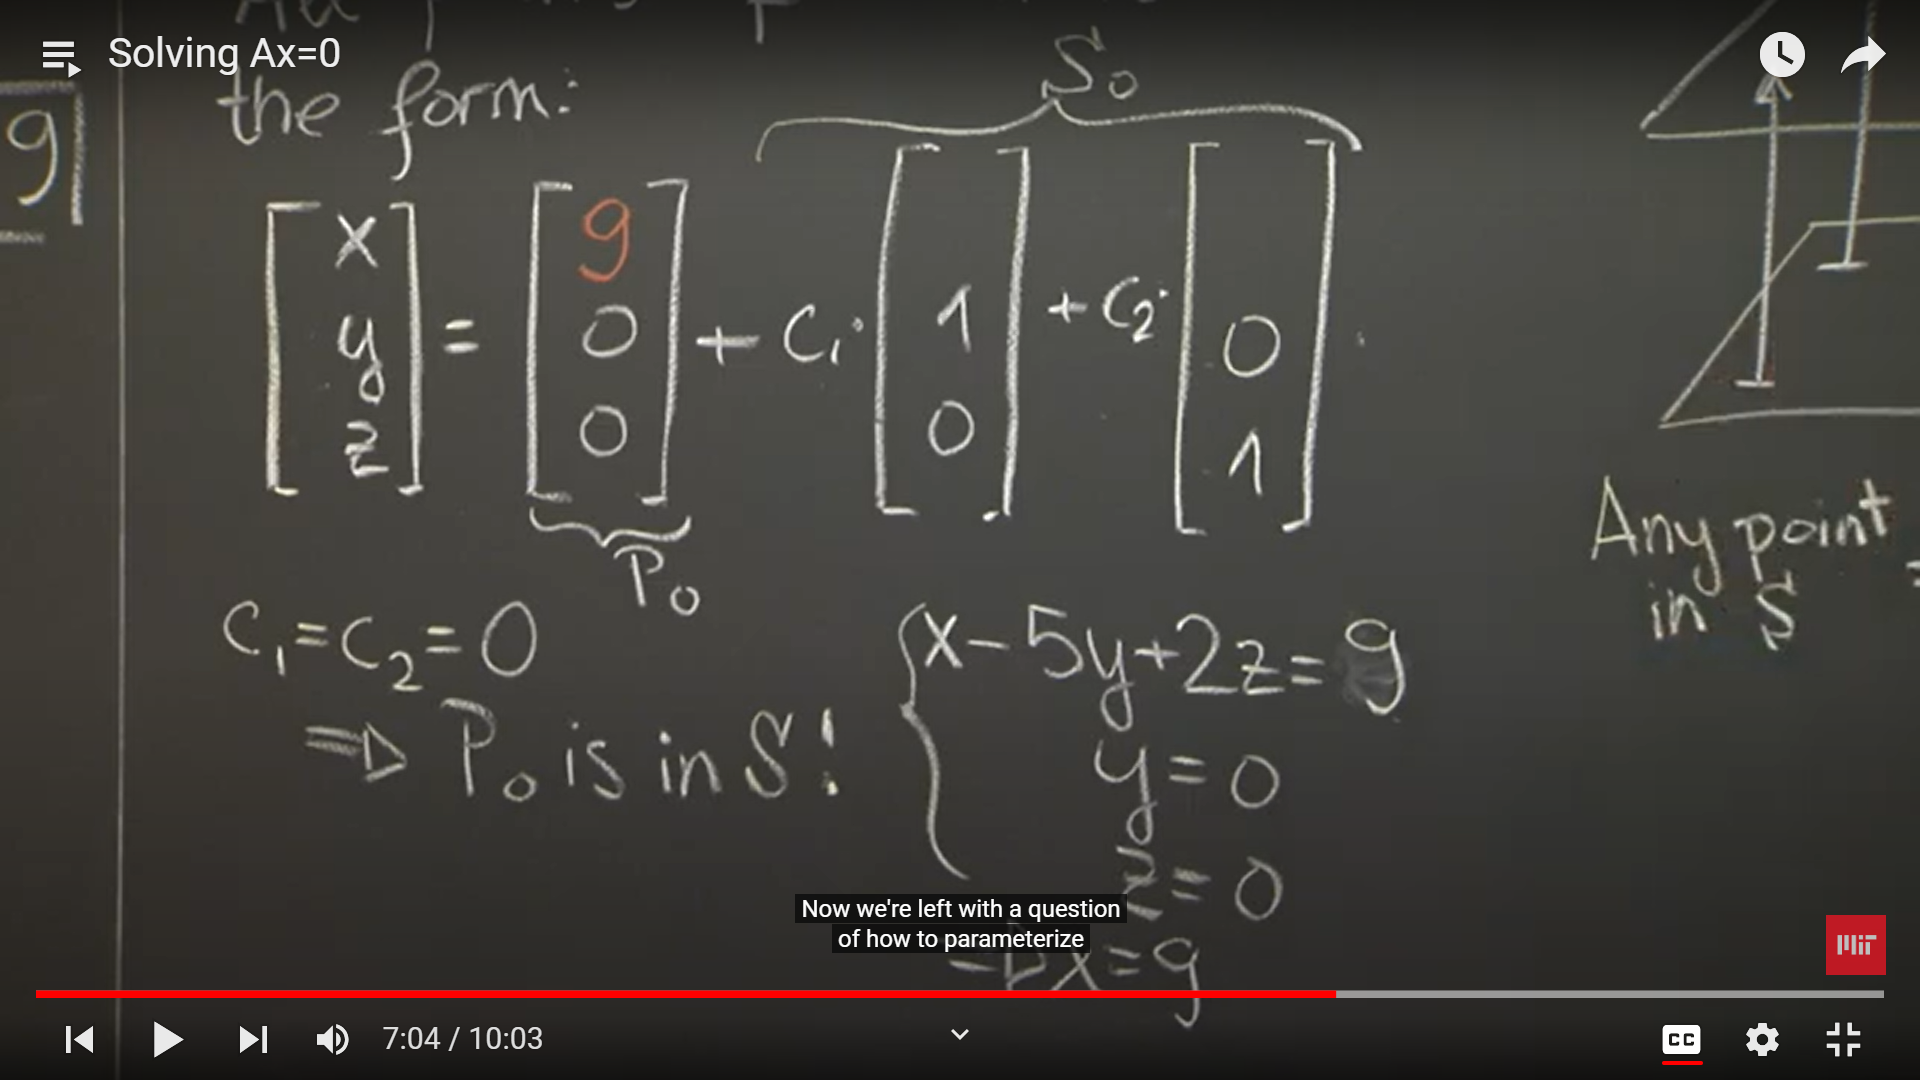 Solving Ax=0
the form:
S₀
9
[x y z] = [9 0 0] + C₁· [ 1 0] + C₂· [ 0 1]
P₀
C₁=C₂=0
⇒ P₀ is in S!
x-5y+2z=9
y=0
z=0
⇒ x=9
Any point
in S
Now we're left with a question
of how to parameterize
MIT
7:04 / 10:03
CC